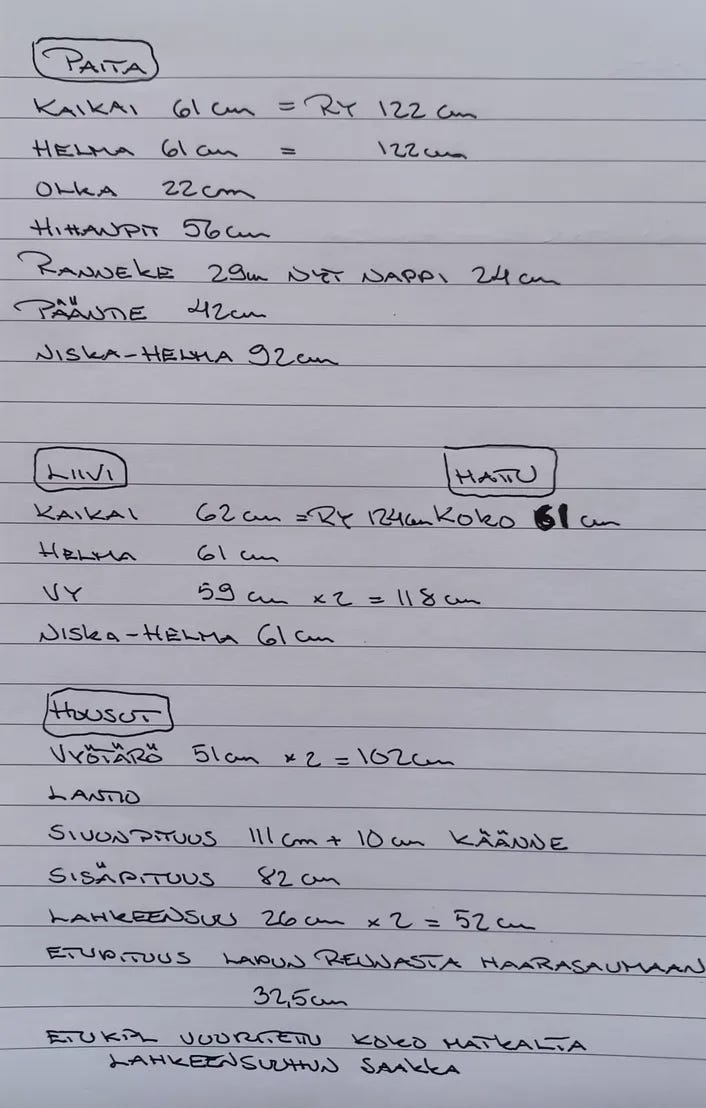 PAITA
KAIKAI 61 cm = RY 122 cm
HELMA 61 cm = 122 cm
OLKA 22 cm
HIHANPIT 56 cm
RANNEKE 29 cm NYT NAPPI 24 cm
PÄÄNTIE 42 cm
NISKA-HELMA 92 cm
LIIVI HATTU
KAIKAI 62 cm = RY 124 cm KOKO 61 cm
HELMA 61 cm
VY 59 cm x 2 = 118 cm
NISKA-HELMA 61 cm
HOUSUT
VYÖTÄRÖ 51 cm x 2 = 102 cm
LANTIO
SIVUNPITUUS 111 cm + 10 cm KÄÄNNE
SISÄPITUUS 82 cm
LAHKEENSUU 26 cm x 2 = 52 cm
ETUPITUUS REUNASTA HAARASAUMAAN
32,5 cm
ETUKPL VUORITETTU KOKO MATKALTA
LAHKEENSUUHUN SAAKKA